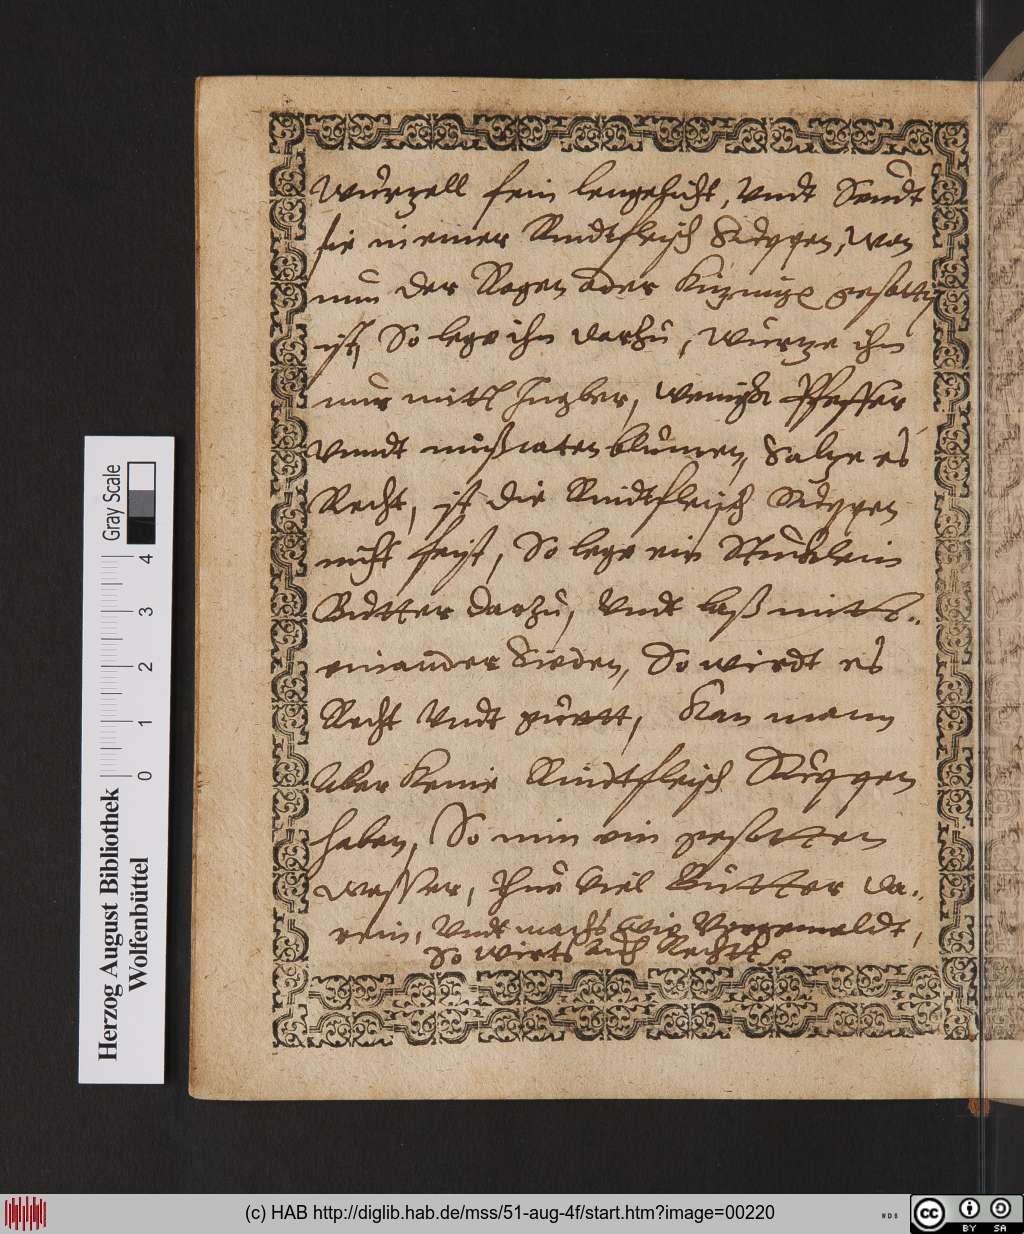 Wurtzell fein lengelicht, Vndt Seudt
sie in einer Rindtfleisch Suppen, Wan
nun der Rogen oder gesotten
ist, So lege ihn darzu, Würtze ihn
nur mitt Ingber, wenigk Pfeffer
Vnndt mußcaten blumen, Saltze es
Recht, ist die Rindtfleisch Suppen
nicht feist, So lege ein Stücklein
Butter darzu, Vndt laß mitt
einander Sieden, So wirdt es
Recht Vndt guett, Kan mann
Aber Keine Rindtfleisch Suppen
haben, So nim ein gesotten
Wasser, thue Viel Butter da..
rein, Vndt machs wie Vorgemeldt,
So wirts auch Rechtt
Herzog August Bibliothek
Wolfenbüttel
Gray Scale
0 1 2 3 4
(c) HAB http://diglib.hab.de/mss/51-aug-4f/start.htm?image=00220
WDB
cc BY SA